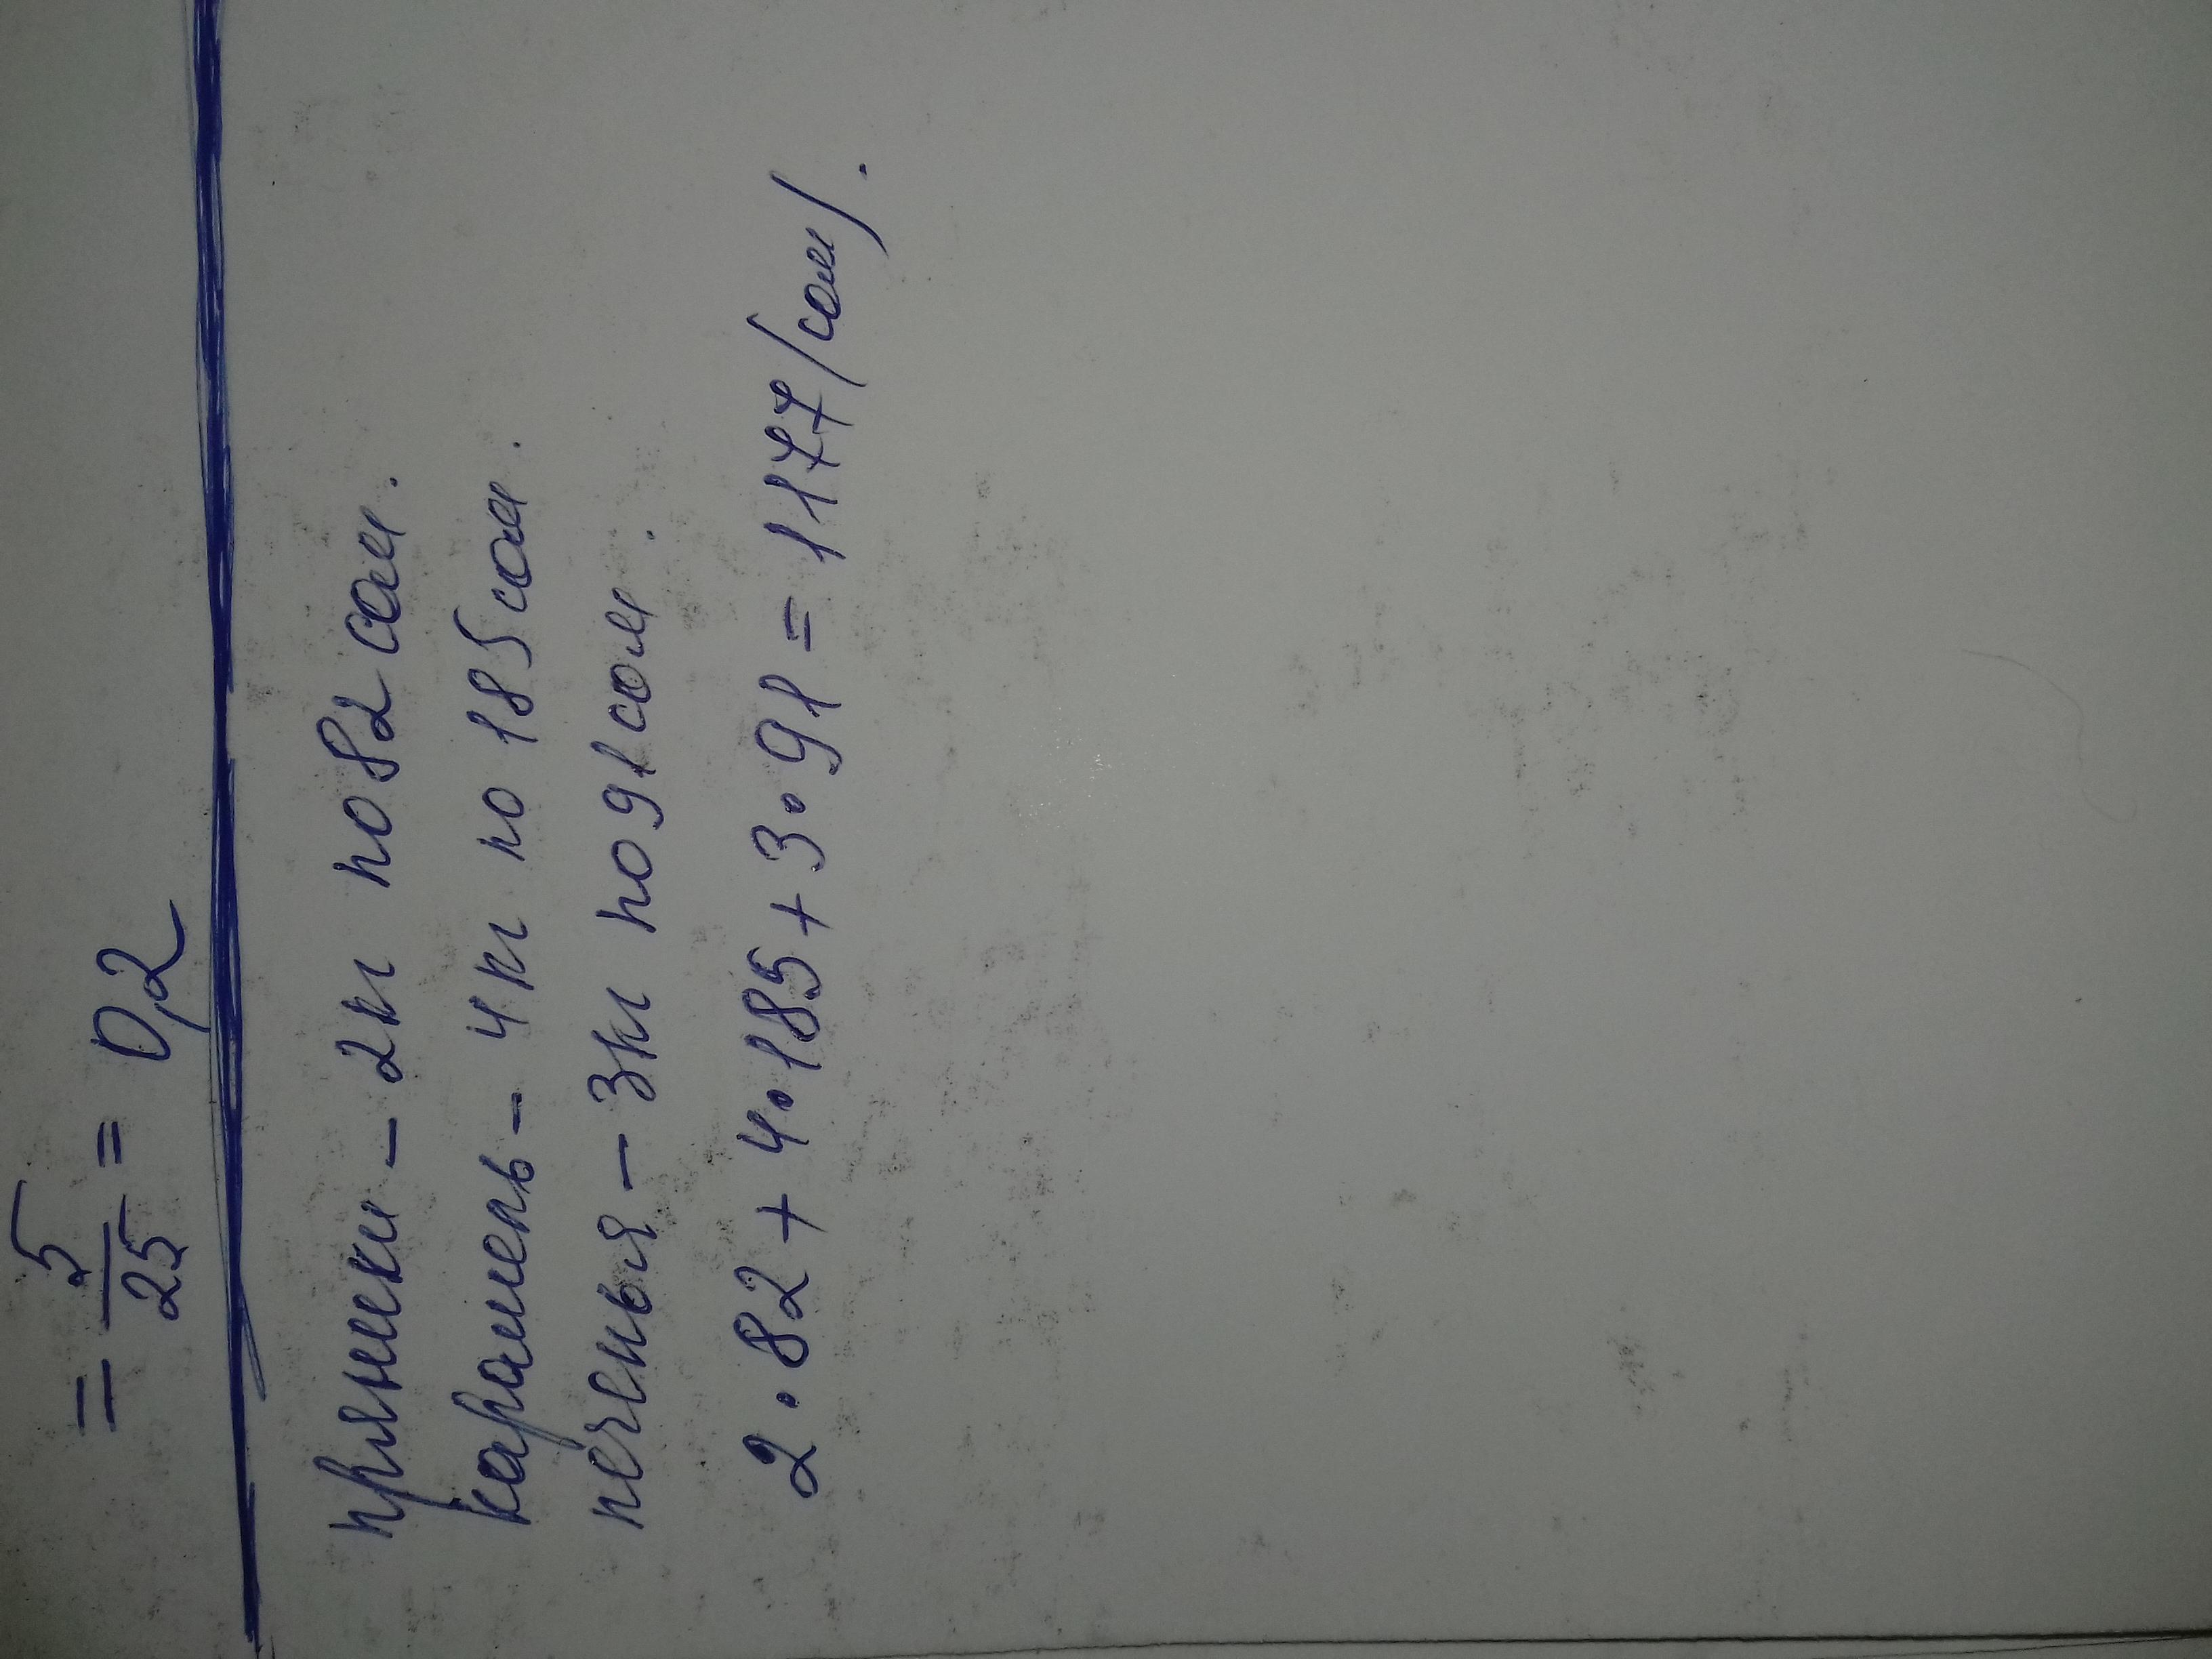 = 5/25 = 0,2
пряники - 2кг по 82 сом.
карамель - 4кг по 185 сом.
печенья - 3кг по 91 сом.
2 · 82 + 4 · 185 + 3 · 91 = 1177 (сом).